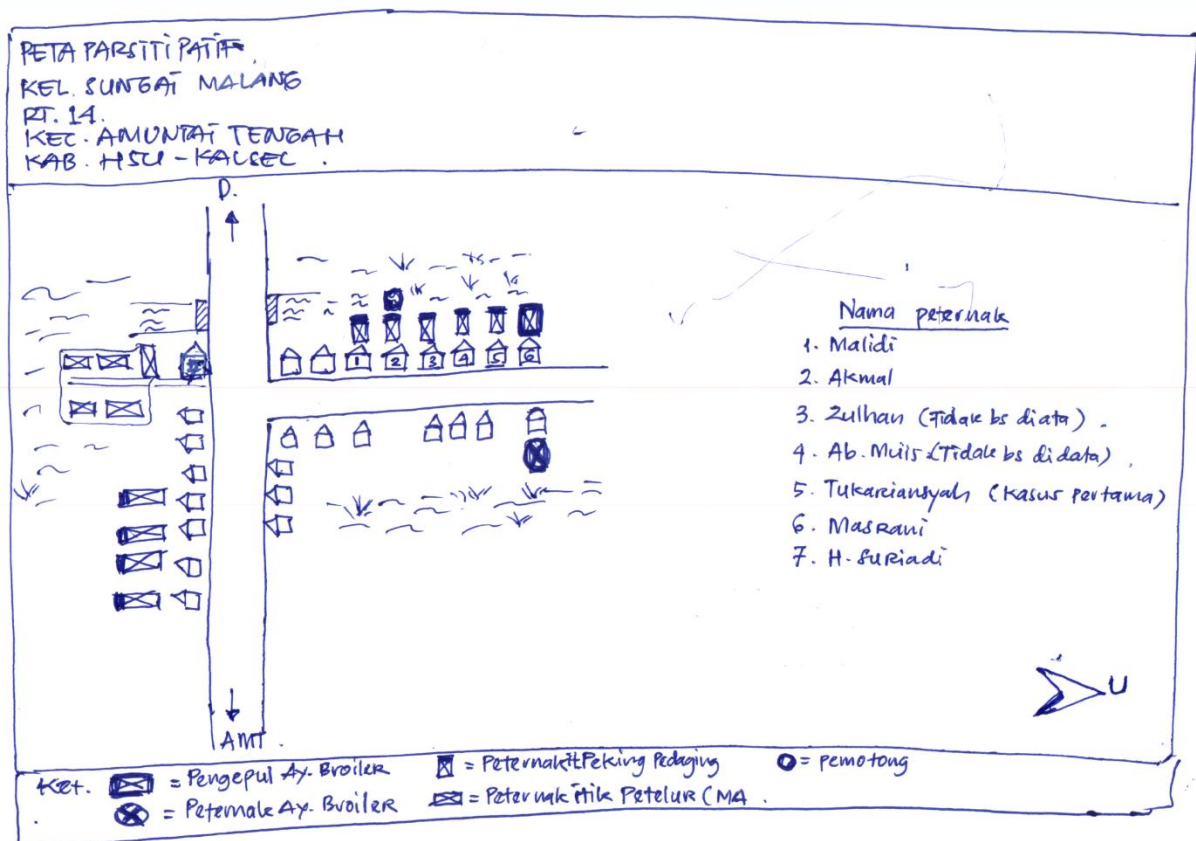 PETA PARSITIPATIF
KEL. SUNGAI MALANG
RT. 14.
KEC. AMUNTAI TENGAH
KAB. HSU - KALSEL.
D.
1 2 3 4 5 6
7
AMT.
Nama peternak
1. Malidi
2. Akmal
3. Zulhan (Tidak bs diata).
4. Ab. Muis (Tidak bs didata).
5. Tukareiansyah (Kasus pertama)
6. Masrani
7. H. Suriadi
U
Ket. = Pengepul Ay. Broiler = Peternak It Peking Pedaging = pemotong
= Peternak Ay. Broiler = Peternak itik Petelur CMA.